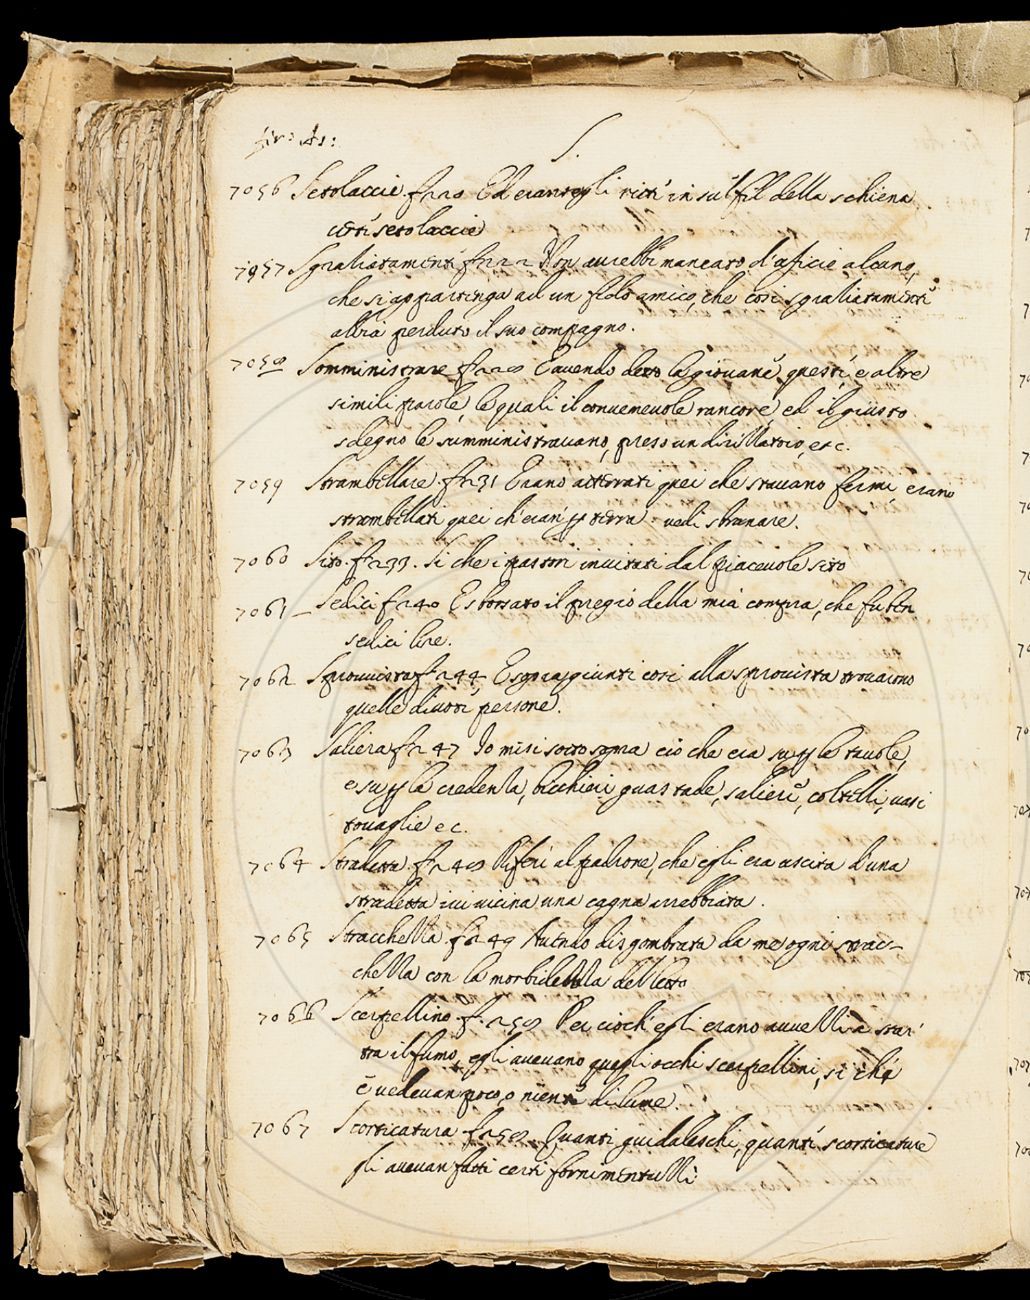 fir: As:
S.
7056 Setolaccie. fr 20 Ed erantegli ritti in su'l fil della schiena
certi setolaccie
7057 Sgraliatamenti fr 22 Non aurebbi mancato d'uficio alcuno,
che si appartenga ad un fido amico, che così sgraliatamenti
abbia perduto il suo compagno.
7058 Somministrare fr 28 E auendo detto le giouane questi, e altre
simili parole, le quali il conueneuole rancore, ed il giusto
sdegno le sumministrauano, preso un dirillatoio, etc.
7059 Strambellare. fr 31 Erano atterrati quei che stauano fermi, erano
strambellati quei ch'eran p terra. vedi sbranare.
7060 Sito. fr 33. Si che i pastori inuitati dal piaceuole sito
7061 Sedici fr 40 E sborsato il pregio della mia compra, che fu ben
sedici lire.
7062 Sprouuista fr 44 E sopraggiunti così alla sprouista trouarono
quelle diuoti persone.
7063 Saliera fr 47 Io misi sotto sopra ciò che era su p le tauole,
e su p la credenza, bicchieri guastade, salieri, coltelli, uasi
touaglie ec.
7064 Stradetta. fr 48 Riferì al padrone, che egli era uscita d'una
stradetta iui uicina una cagna arrabbiata.
7065 Stracchezza fr 49 Auendo disgombrata da me ogni strac-
chezza con la morbidezza del letto
7066 Scerpellino fr. 258 Per cioch'egli erano auuezzi a star'
tra il fumo, egli aueuano quegli occhi scerpellini, si che
e uedeuan poco, o niente di lume.
7067 Scorticatura fr 58 Quanti guidaleschi, quanti scorticature
gli aueuan fatti certi fornimentuzzi